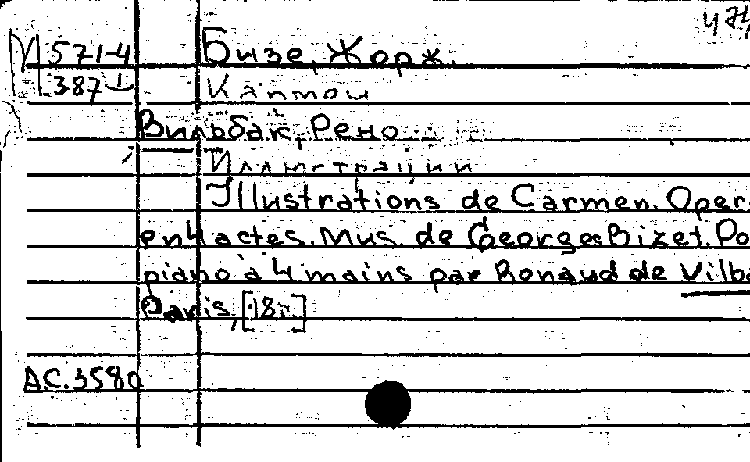 М 571-4
387
Бизе, Жорж.
Кармен
Вильбак, Рено
Иллюстрации
Illustrations de Carmen. Oper
en 4 actes. Mus. de Georges Bizet. Po
piano à 4 mains par Renaud de Vilba
Paris, [18
А.С.3580